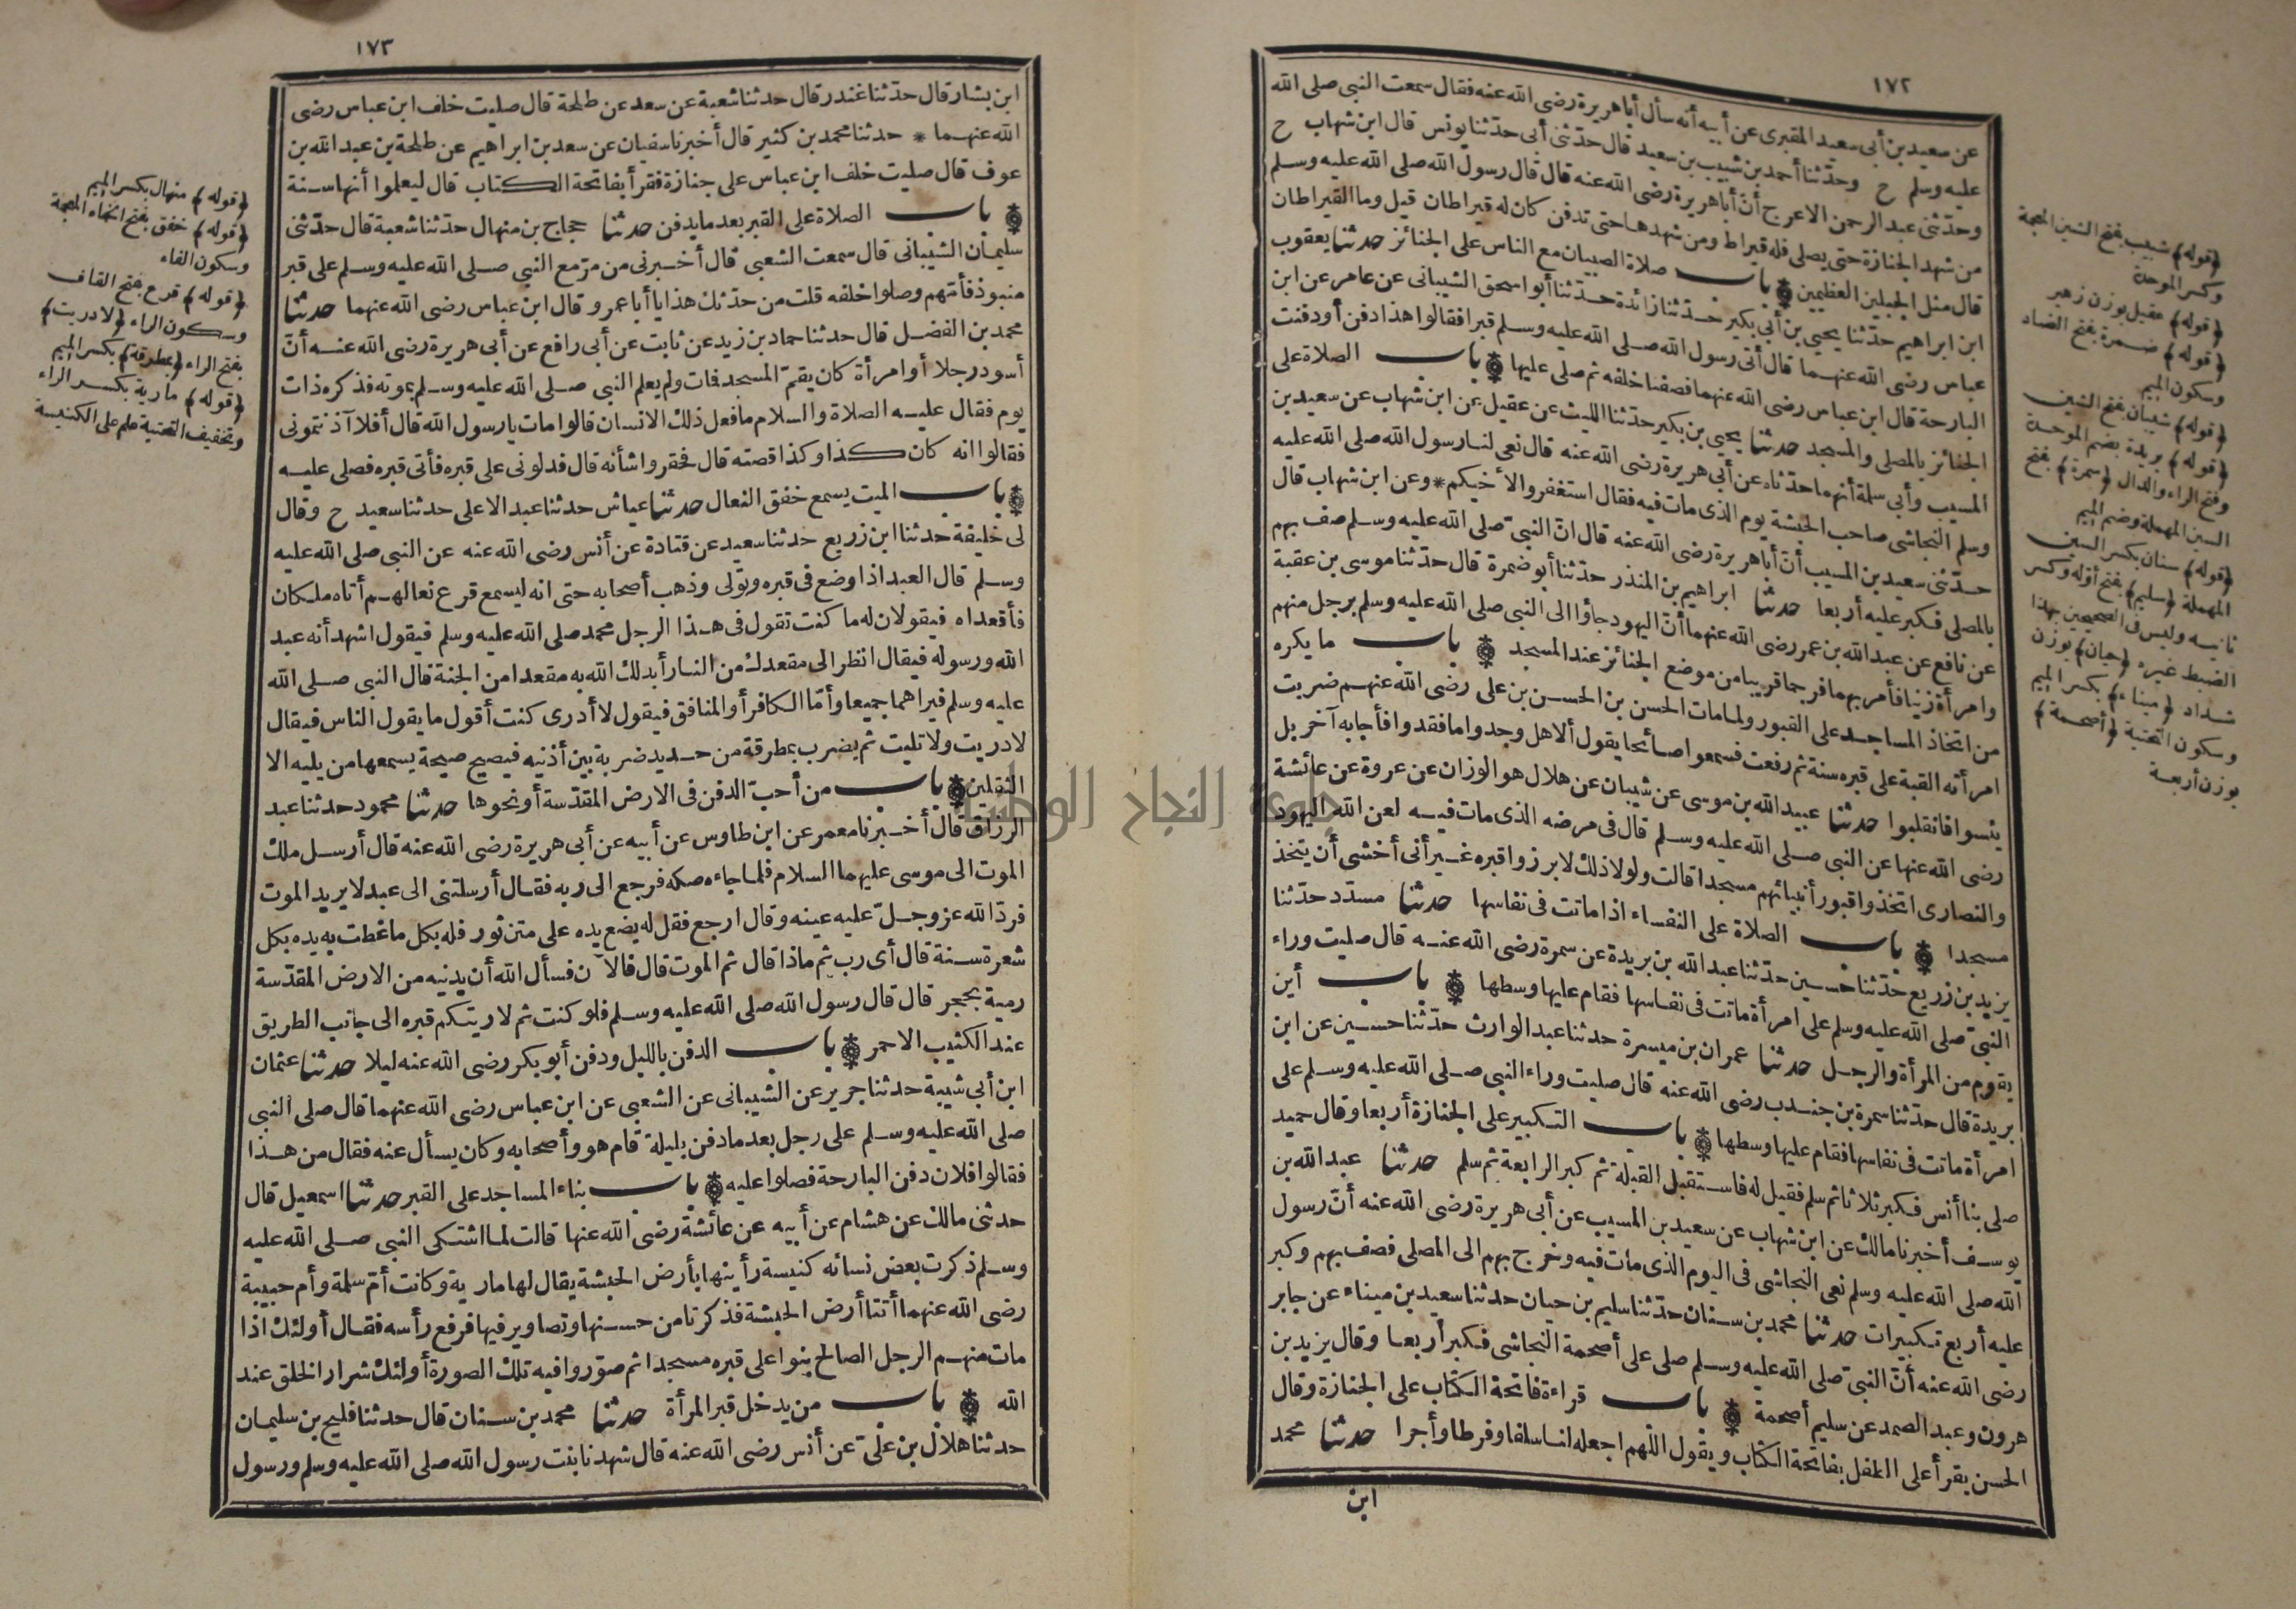 ١٧٢
عن سعيد بن أبى سعيد المقبرى عن أبيه أنه سأل أبا هريرة رضى الله عنه فقال سمعت النبى صلى الله
عليه وسلم ح وحدّثنا أحمد بن شبيب بن سعيد قال حدّثنى أبى حدّثنا يونس قال ابن شهاب ح
وحدّثنى عبد الرحمن الاعرج أنّ أبا هريرة رضى الله عنه قال قال رسول الله صلى الله عليه وسلم
من شهد الجنازة حتى يصلى فله قيراط ومن شهدها حتى تدفن كان له قيراطان قيل وما القيراطان
قال مثل الجبلين العظيمين باب صلاة الصبيان مع الناس على الجنائز حدثنا يعقوب
ابن ابراهيم حدّثنا يحيى بن أبى بكير حدّثنا زائدة حدّثنا أبو اسحق الشيبانى عن عامر عن ابن
عباس رضى الله عنهما قال أتى رسول الله صلى الله عليه وسلم قبرا فقالوا هذا دفن أو دفنت
البارحة قال ابن عباس رضى الله عنهما فصفنا خلفه ثم صلى عليها باب الصلاة على
الجنائز بالمصلى والمسجد حدثنا يحيى بن بكير حدّثنا الليث عن عقيل عن ابن شهاب عن سعيد بن
المسيب وأبى سلمة أنهما حدّثاه عن أبى هريرة رضى الله عنه قال نعى لنا رسول الله صلى الله عليه
وسلم النجاشى صاحب الحبشة يوم الذى مات فيه فقال استغفروا لأخيكم * وعن ابن شهاب قال
حدّثنى سعيد بن المسيب أنّ أبا هريرة رضى الله عنه قال انّ النبىّ صلى الله عليه وسلم صف بهم
بالمصلى فكبر عليه أربعا حدثنا ابراهيم بن المنذر حدّثنا أبو ضمرة قال حدّثنا موسى بن عقبة
عن نافع عن عبد الله بن عمر رضى الله عنهما أنّ اليهود جاؤا الى النبى صلى الله عليه وسلم برجل منهم
وامرأة زنيا فأمر بهما فرجما قريبا من موضع الجنائز عند المسجد باب ما يكره
من اتخاذ المساجد على القبور ولما مات الحسن بن الحسن بن على رضى الله عنهم ضربت
امرأته القبة على قبره سنة ثم رفعت فسمعوا صائحا يقول ألا هل وجدوا ما فقدوا فأجابه آخر بل
يئسوا فانقلبوا حدثنا عبيد الله بن موسى عن شيبان عن هلال هو الوزان عن عروة عن عائشة
رضى الله عنها عن النبى صلى الله عليه وسلم قال فى مرضه الذى مات فيه لعن الله اليهود
والنصارى اتخذوا قبور أنبيائهم مسجدا قالت ولولا ذلك لابرزوا قبره غير أنى أخشى أن يتخذ
مسجدا باب الصلاة على النفساء اذا ماتت فى نفاسها حدثنا مسدّد حدّثنا
يزيد بن زريع حدّثنا حسين حدّثنا عبد الله بن بريدة عن سمرة رضى الله عنه قال صليت وراء
النبىّ صلى الله عليه وسلم على امرأة ماتت فى نفاسها فقام عليها وسطها باب أين
يقوم من المرأة والرجل حدثنا عمران بن ميسرة حدثنا عبد الوارث حدّثنا حسين عن ابن
بريدة قال حدّثنا سمرة بن جندب رضى الله عنه قال صليت وراء النبى صلى الله عليه وسلم على
امرأة ماتت فى نفاسها فقام عليها وسطها باب التكبير على الجنازة أربعا وقال حميد
صلى بنا أنس فكبر ثلاثا ثم سلم فقيل له فاستقبل القبلة ثم كبر الرابعة ثم سلم حدثنا عبد الله بن
يوسف أخبرنا مالك عن ابن شهاب عن سعيد بن المسيب عن أبى هريرة رضى الله عنه أنّ رسول
الله صلى الله عليه وسلم نعى النجاشى فى اليوم الذى مات فيه وخرج بهم الى المصلى فصف بهم وكبر
عليه أربع تكبيرات حدثنا محمد بن سنان حدّثنا سليم بن حيان حدثنا سعيد بن ميناء عن جابر
رضى الله عنه أنّ النبىّ صلى الله عليه وسلم صلى على أصحمة النجاشى فكبر أربعا وقال يزيد بن
هرون وعبد الصمد عن سليم أصحمة باب قراءة فاتحة الكتاب على الجنازة وقال
الحسن يقرأ على الطفل بفاتحة الكتاب ويقول اللهم اجعله لنا سلفا وفرطا وأجرا حدثنا محمد
ابن
﴿قوله﴾ شبيب بفتح الشين المعجمة
وكسر الموحدة
﴿قوله﴾ عقيل بوزن زهير
﴿قوله﴾ ضمرة بفتح الضاد
وسكون الميم
﴿قوله﴾ شيبان بفتح الشين
﴿قوله﴾ بريدة بضم الموحدة
وفتح الراء والدال ﴿سمرة﴾ بفتح
السين المهملة وضم الميم
﴿قوله﴾ سنان بكسر السين
المهملة ﴿سليم﴾ بفتح أوله وكسر
ثانيه وليس فى الصحيحين بهذا
الضبط غيره ﴿حيان﴾ بوزن
شداد ﴿ميناء﴾ بكسر الميم
وسكون التحتية ﴿أصحمة﴾
بوزن أربعة
١٧٣
ابن بشار قال حدّثنا غندر قال حدثنا شعبة عن سعد عن طلحة قال صليت خلف ابن عباس رضى
الله عنهما * حدثنا محمد بن كثير قال أخبرنا سفيان عن سعد بن ابراهيم عن طلحة بن عبد الله بن
عوف قال صليت خلف ابن عباس على جنازة فقرأ بفاتحة الكتاب قال ليعلموا أنها سنة
باب الصلاة على القبر بعد ما يدفن حدثنا حجاج بن منهال حدّثنا شعبة قال حدّثنى
سليمان الشيبانى قال سمعت الشعبى قال أخبرنى من مرّ مع النبى صلى الله عليه وسلم على قبر
منبوذ فأمّهم وصلوا خلفه قلت من حدّثك هذا يا أبا عمرو قال ابن عباس رضى الله عنهما حدثنا
محمد بن الفضل قال حدثنا حماد بن زيد عن ثابت عن أبى رافع عن أبى هريرة رضى الله عنه أنّ
أسود رجلا أو امرأة كان يقمّ المسجد فمات ولم يعلم النبى صلى الله عليه وسلم بموته فذكره ذات
يوم فقال عليه الصلاة والسلام ما فعل ذلك الانسان قالوا مات يا رسول الله قال أفلا آذنتمونى
فقالوا انه كان كذا وكذا قصته قال فحقروا شأنه قال فدلونى على قبره فأتى قبره فصلى عليه
باب الميت يسمع خفق النعال حدثنا عياش حدثنا عبد الاعلى حدثنا سعيد ح وقال
لى خليفة حدثنا ابن زريع حدثنا سعيد عن قتادة عن أنس رضى الله عنه عن النبى صلى الله عليه
وسلم قال العبد اذا وضع فى قبره وتولى وذهب أصحابه حتى انه ليسمع قرع نعالهم أتاه ملكان
فأقعداه فيقولان له ما كنت تقول فى هذا الرجل محمد صلى الله عليه وسلم فيقول اشهد أنه عبد
الله ورسوله فيقال انظر الى مقعدك من النار أبدلك الله به مقعدا من الجنة قال النبى صلى الله
عليه وسلم فيراهما جميعا وأمّا الكافر أو المنافق فيقول لا أدرى كنت أقول ما يقول الناس فيقال
لا دريت ولا تليت ثم يضرب بمطرقة من حديد ضربة بين أذنيه فيصيح صيحة يسمعها من يليه الا
الثقلين باب من أحبّ الدفن فى الارض المقدّسة أو نحوها حدثنا محمود حدثنا عبد
الرزاق قال أخبرنا معمر عن ابن طاوس عن أبيه عن أبى هريرة رضى الله عنه قال أرسل ملك
الموت الى موسى عليهما السلام فلما جاءه صكه فرجع الى ربه فقال أرسلتنى الى عبد لا يريد الموت
فردّ الله عز وجلّ عليه عينه وقال ارجع فقل له يضع يده على متن ثور فله بكل ما غطت به يده بكل
شعرة سنة قال أى رب ثم ماذا قال ثم الموت قال فالآن فسأل الله أن يدنيه من الارض المقدّسة
رمية بحجر قال قال رسول الله صلى الله عليه وسلم فلو كنت ثم لاريتكم قبره الى جانب الطريق
عند الكثيب الاحمر باب الدفن بالليل ودفن أبو بكر رضى الله عنه ليلا حدثنا عثمان
ابن أبى شيبة حدثنا جرير عن الشيبانى عن الشعبى عن ابن عباس رضى الله عنهما قال صلى النبى
صلى الله عليه وسلم على رجل بعد ما دفن بليلة قام هو وأصحابه وكان يسأل عنه فقال من هذا
فقالوا فلان دفن البارحة فصلوا عليه باب بناء المساجد على القبر حدثنا اسمعيل قال
حدثنى مالك عن هشام عن أبيه عن عائشة رضى الله عنها قالت لما اشتكى النبى صلى الله عليه
وسلم ذكرت بعض نسائه كنيسة رأينها بأرض الحبشة يقال لها مارية وكانت أمّ سلمة وأم حبيبة
رضى الله عنهما أتتا أرض الحبشة فذكرتا من حسنها وتصاوير فيها فرفع رأسه فقال أولئك اذا
مات منهم الرجل الصالح بنوا على قبره مسجدا ثم صوّروا فيه تلك الصورة أولئك شرار الخلق عند
الله باب من يدخل قبر المرأة حدثنا محمد بن سنان قال حدثنا فليح بن سليمان
حدثنا هلال بن علىّ عن أنس رضى الله عنه قال شهدنا بنت رسول الله صلى الله عليه وسلم ورسول
﴿قوله﴾ منهال بكسر الميم
﴿قوله﴾ خفق بفتح الخاء المعجمة
وسكون الفاء
﴿قوله﴾ قرع بفتح القاف
وسكون الراء ﴿لا دريت﴾
بفتح الراء ﴿بمطرقة﴾ بكسر الميم
﴿قوله﴾ مارية بكسر الراء
وتخفيف التحتية علم على الكنيسة
جامعة النجاح الوطنية